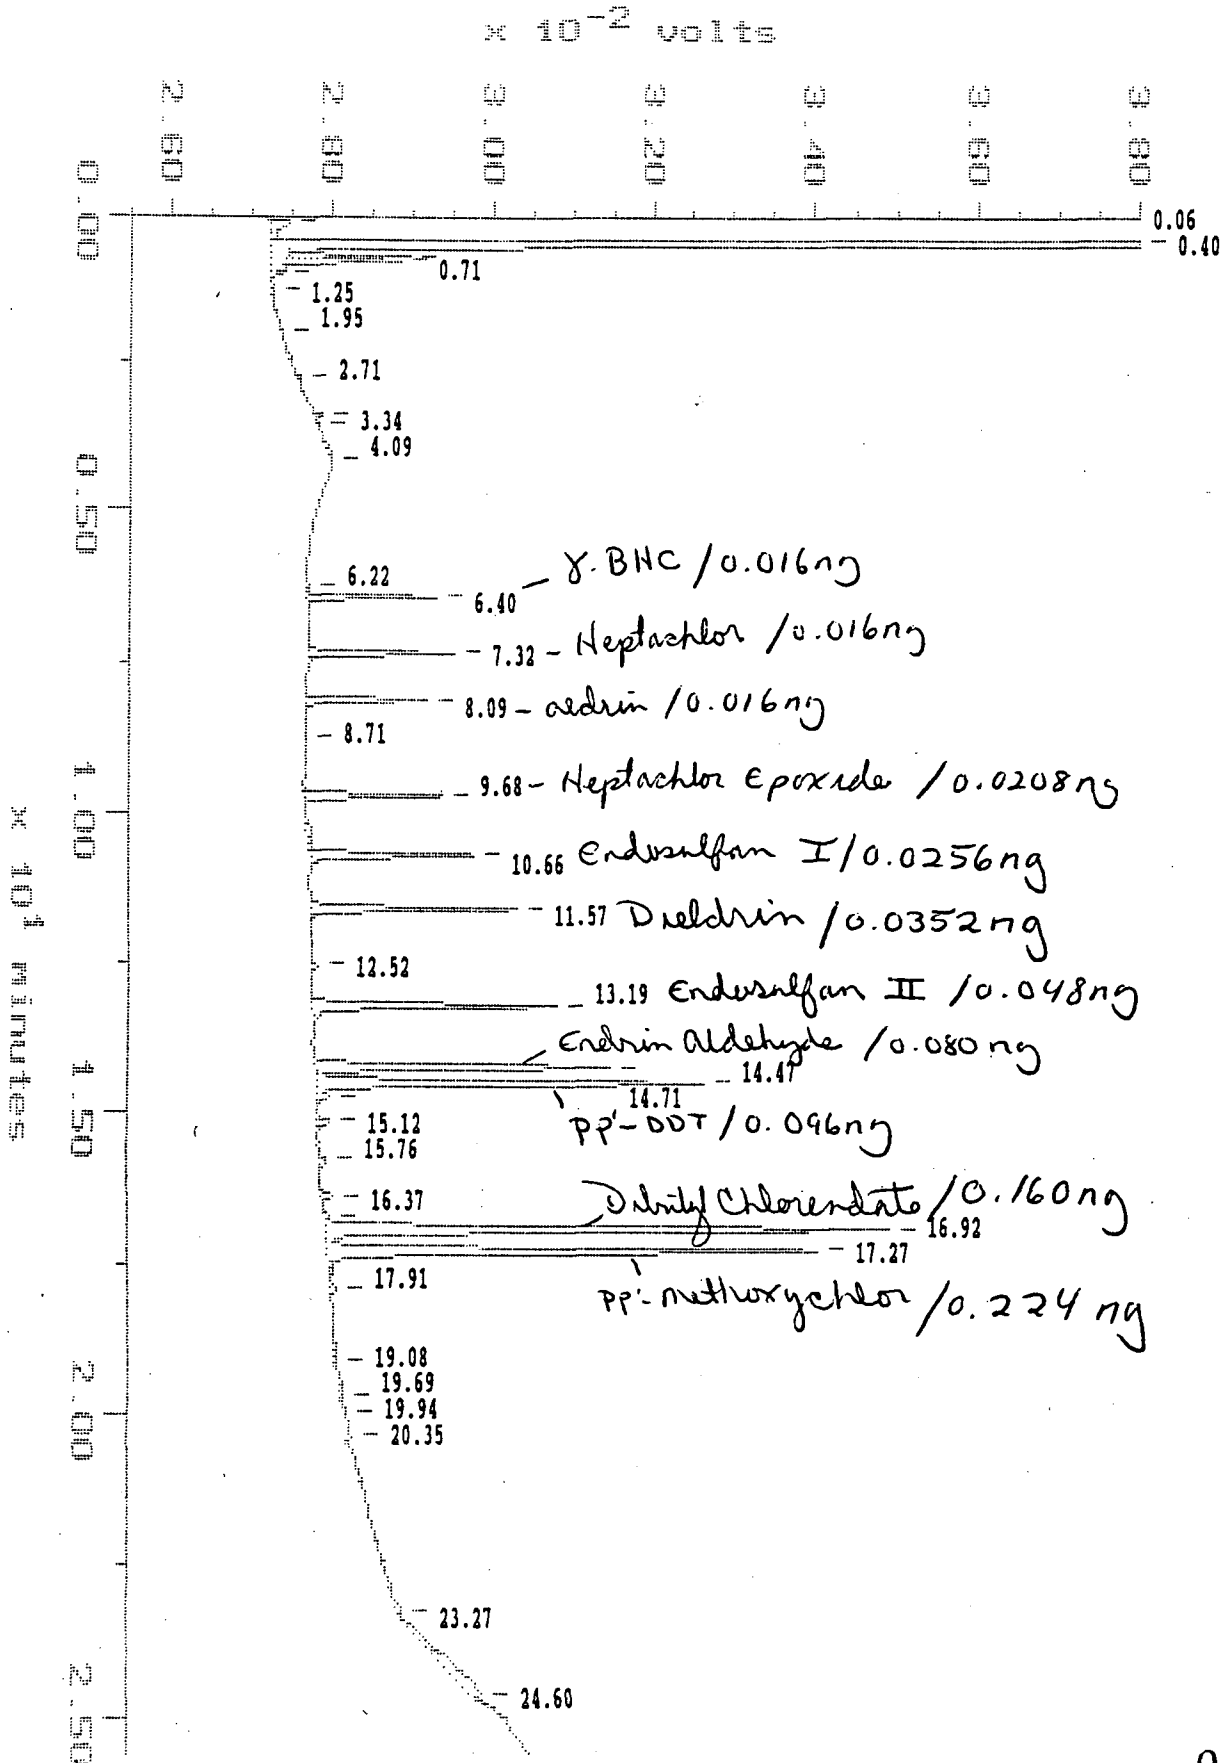 x 10⁻² volts
2.60 2.80 3.00 3.20 3.40 3.60 3.80
0.00
0.06
0.40
0.71
1.25
1.95
2.71
3.34
4.09
0.50
6.22
6.40 γ-BHC / 0.016ng
7.32 - Heptachlor / 0.016ng
8.09 - aldrin / 0.016ng
8.71
9.68 - Heptachlor Epoxide / 0.0208ng
1.00
10.66 Endosulfan I / 0.0256ng
11.57 Dieldrin / 0.0352ng
12.52
13.19 Endosulfan II / 0.048ng
Endrin Aldehyde / 0.080ng
14.47
14.71
1.50
15.12 pp'-DDT / 0.096ng
15.76
16.37 Dibutyl Chlorendate / 0.160ng
16.92
17.27
17.91 pp'-methoxychlor / 0.224 ng
19.08
19.69
19.94
2.00
20.35
23.27
24.60
2.50
x 10¹ minutes